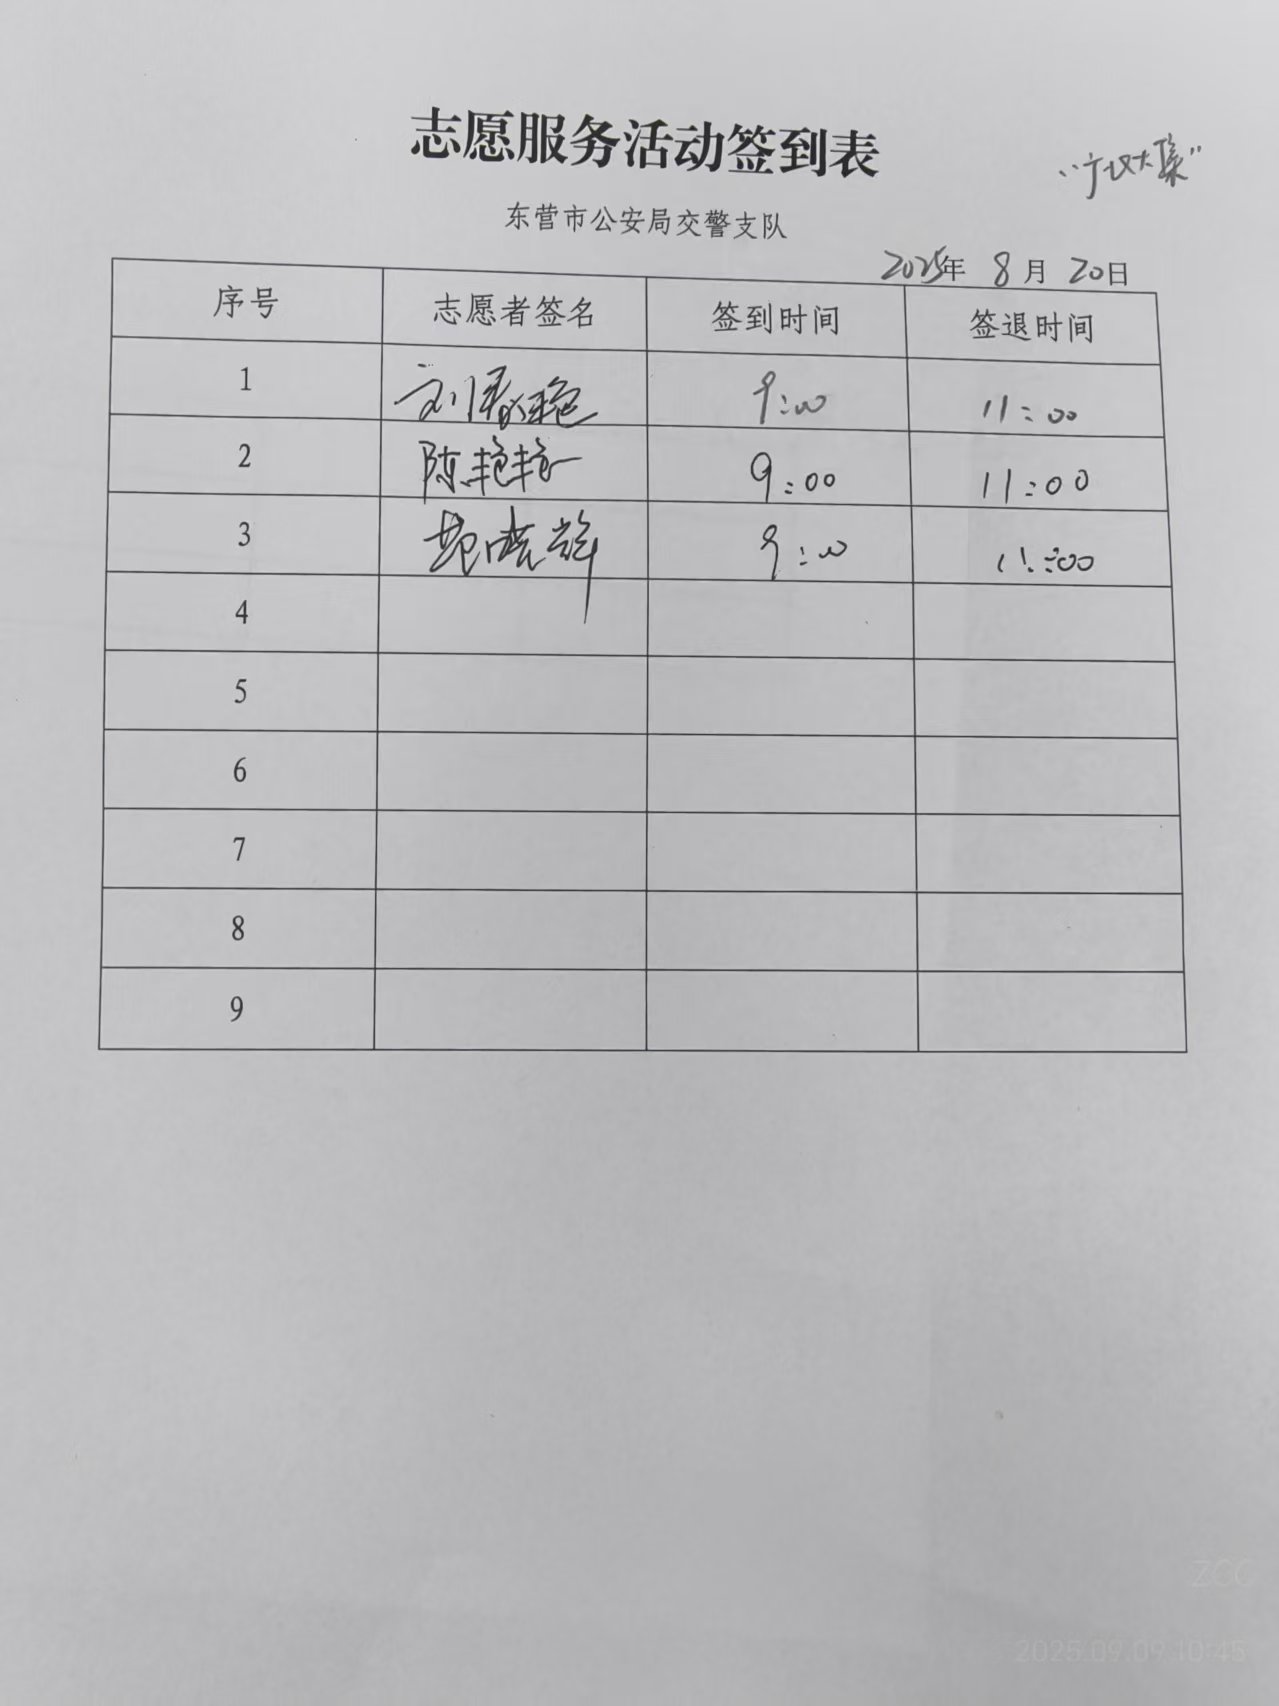 志愿服务活动签到表
"广坟大集"
东营市公安局交警支队
2025年 8月 20日
序号 志愿者签名 签到时间 签退时间
1 刘春艳 9:00 11:00
2 陈艳艳 9:00 11:00
3 9:00 11:00
4
5
6
7
8
9
ZCC
2025.09.09 10:45